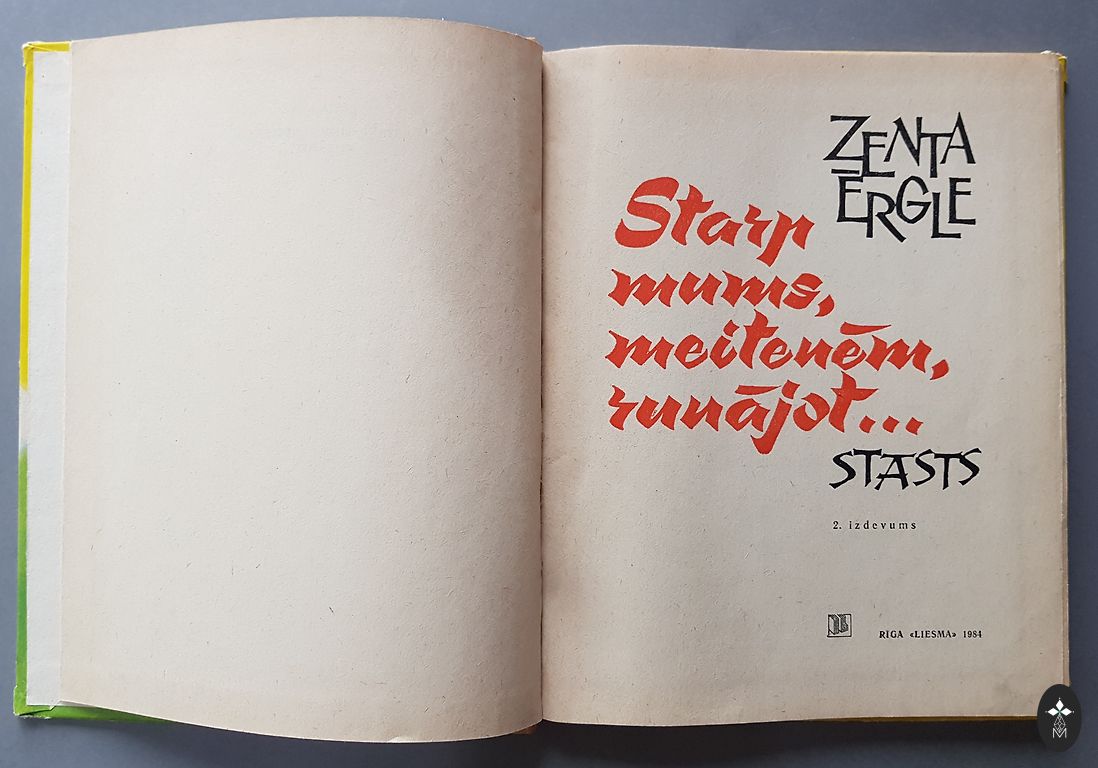 ZENTA
ĒRGLE
Starp
mums,
meitenēm,
runājot...
STĀSTS
2. izdevums
RĪGA «LIESMA» 1984
M